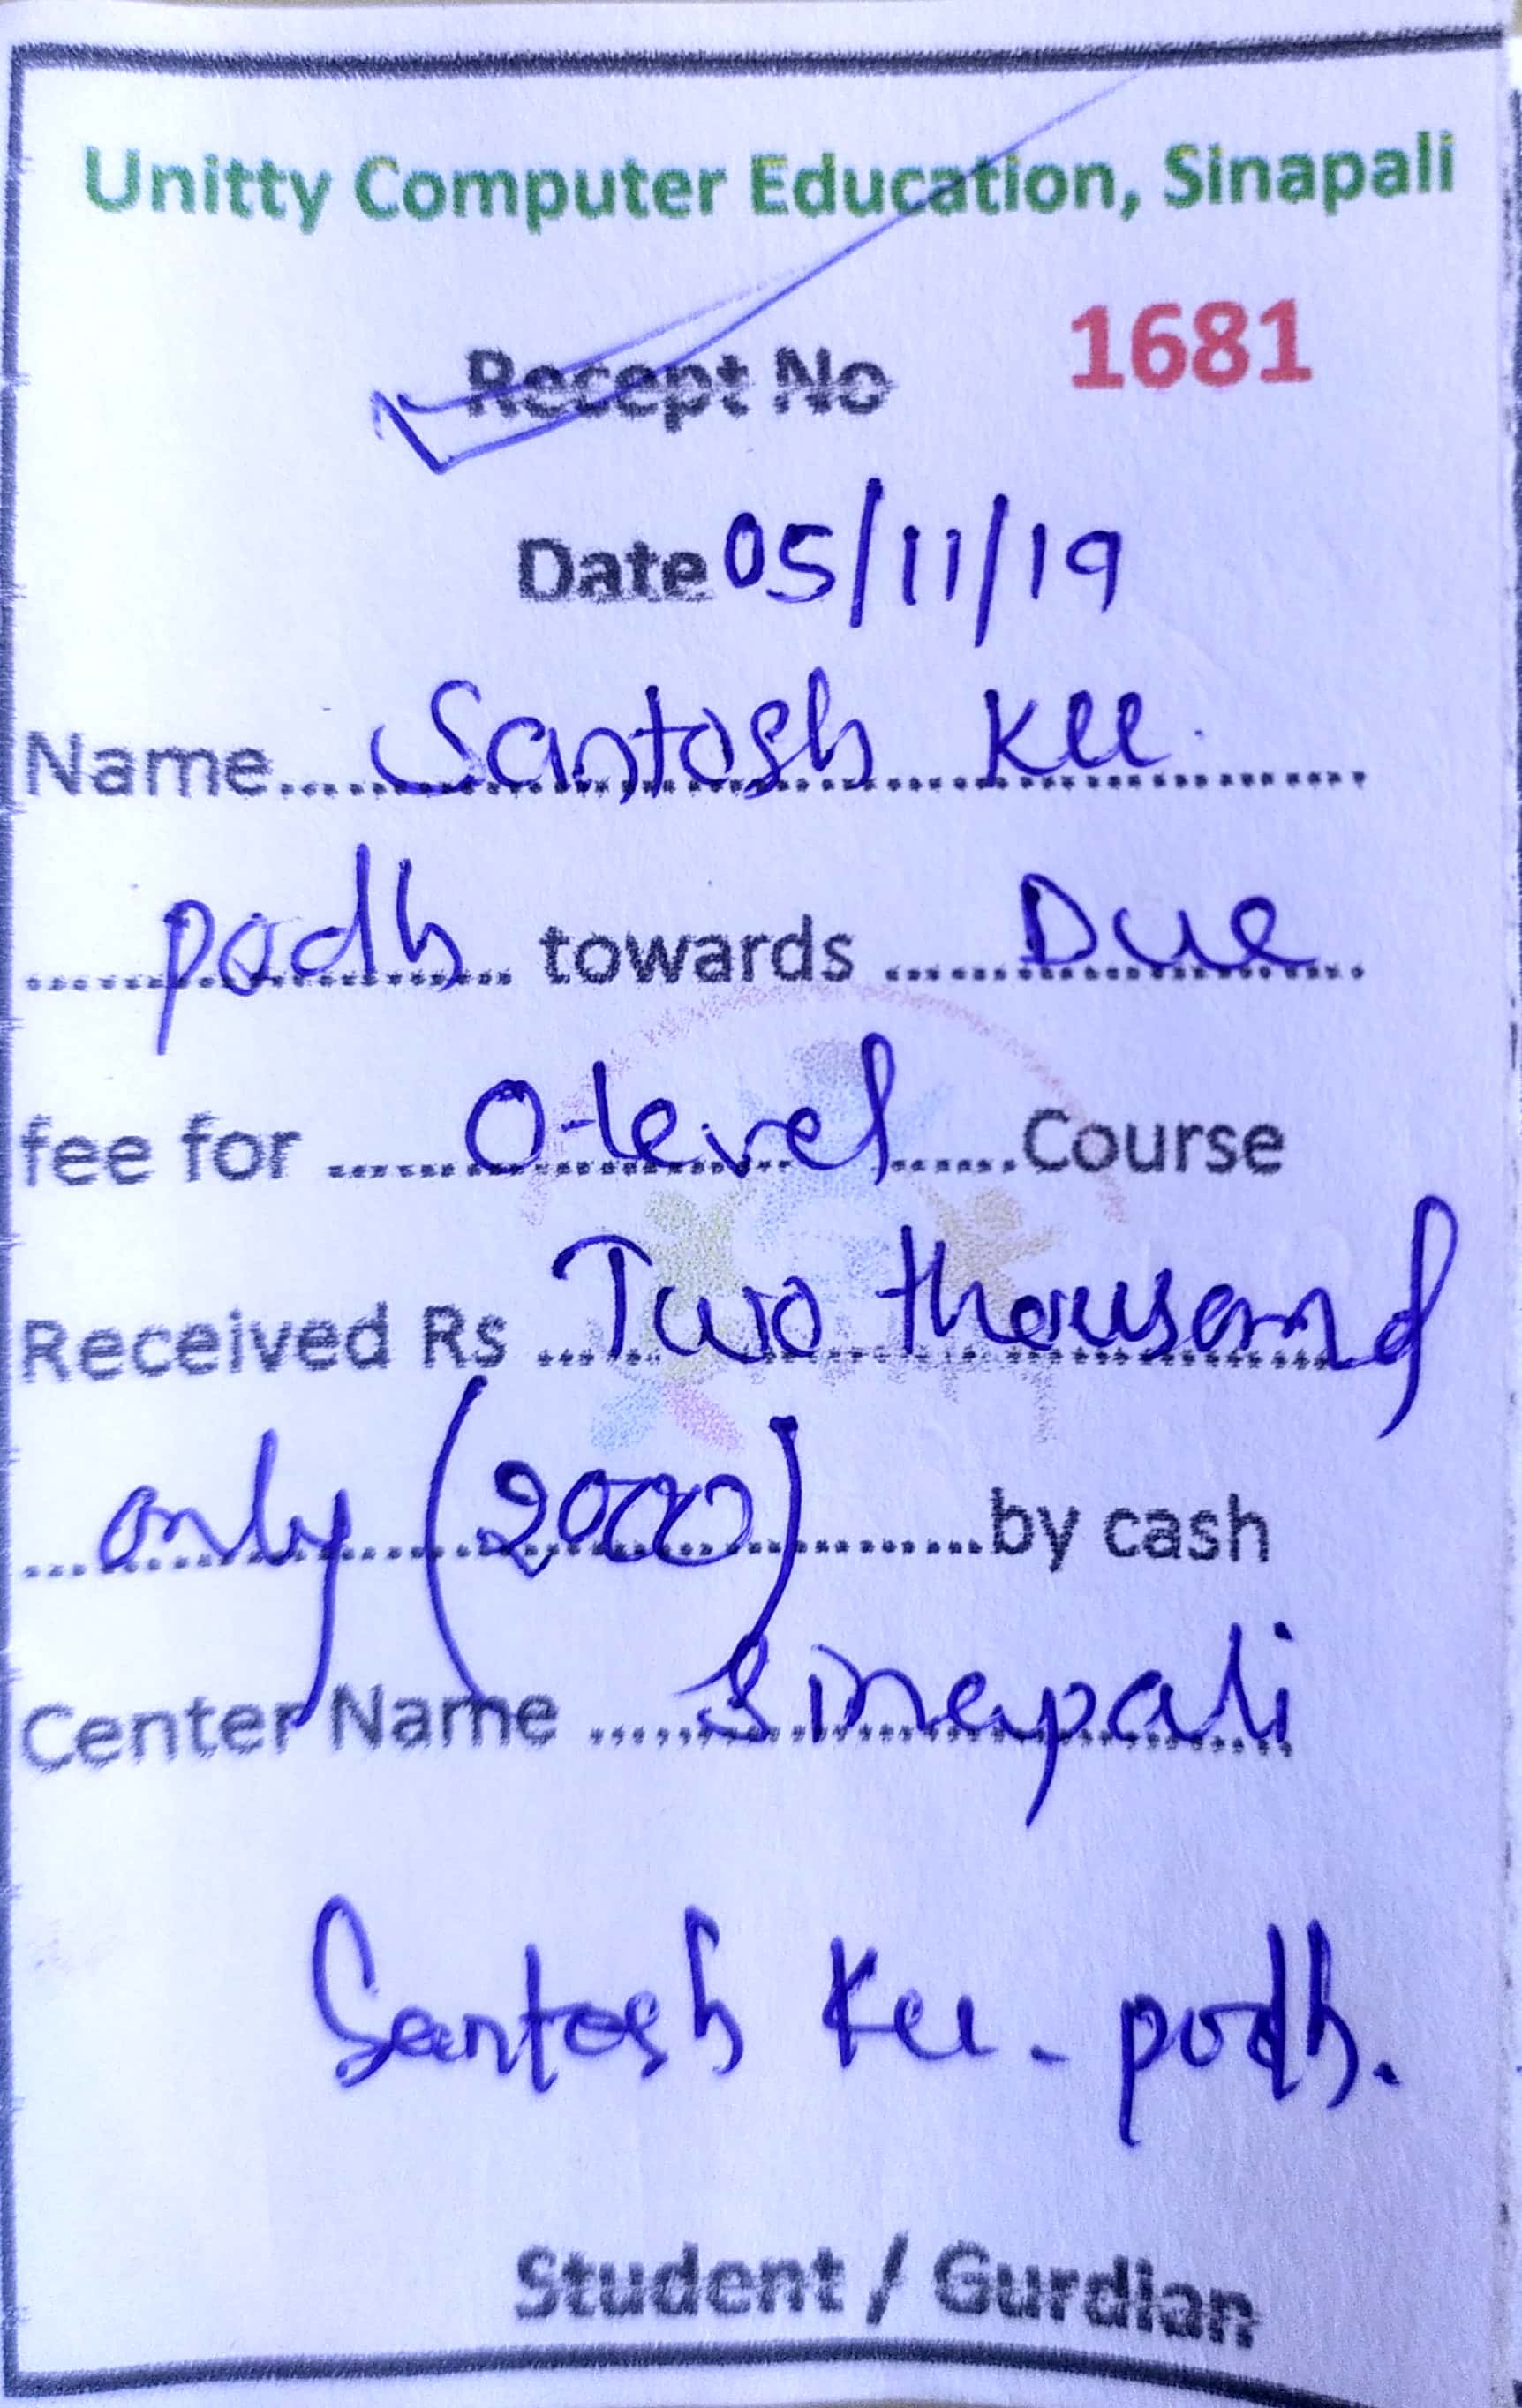 Unitty Computer Education, Sinapali
Recept No 1681
Date 05/11/19
Name.... Santosh Ku. ....
.... podh .... towards .... Due ....
fee for .... O-level .... Course
Received Rs .... Two thousand
.... only (2000) .... by cash
Center Name .... Sinapali
Santosh Ku. podh.
Student / Gurdian